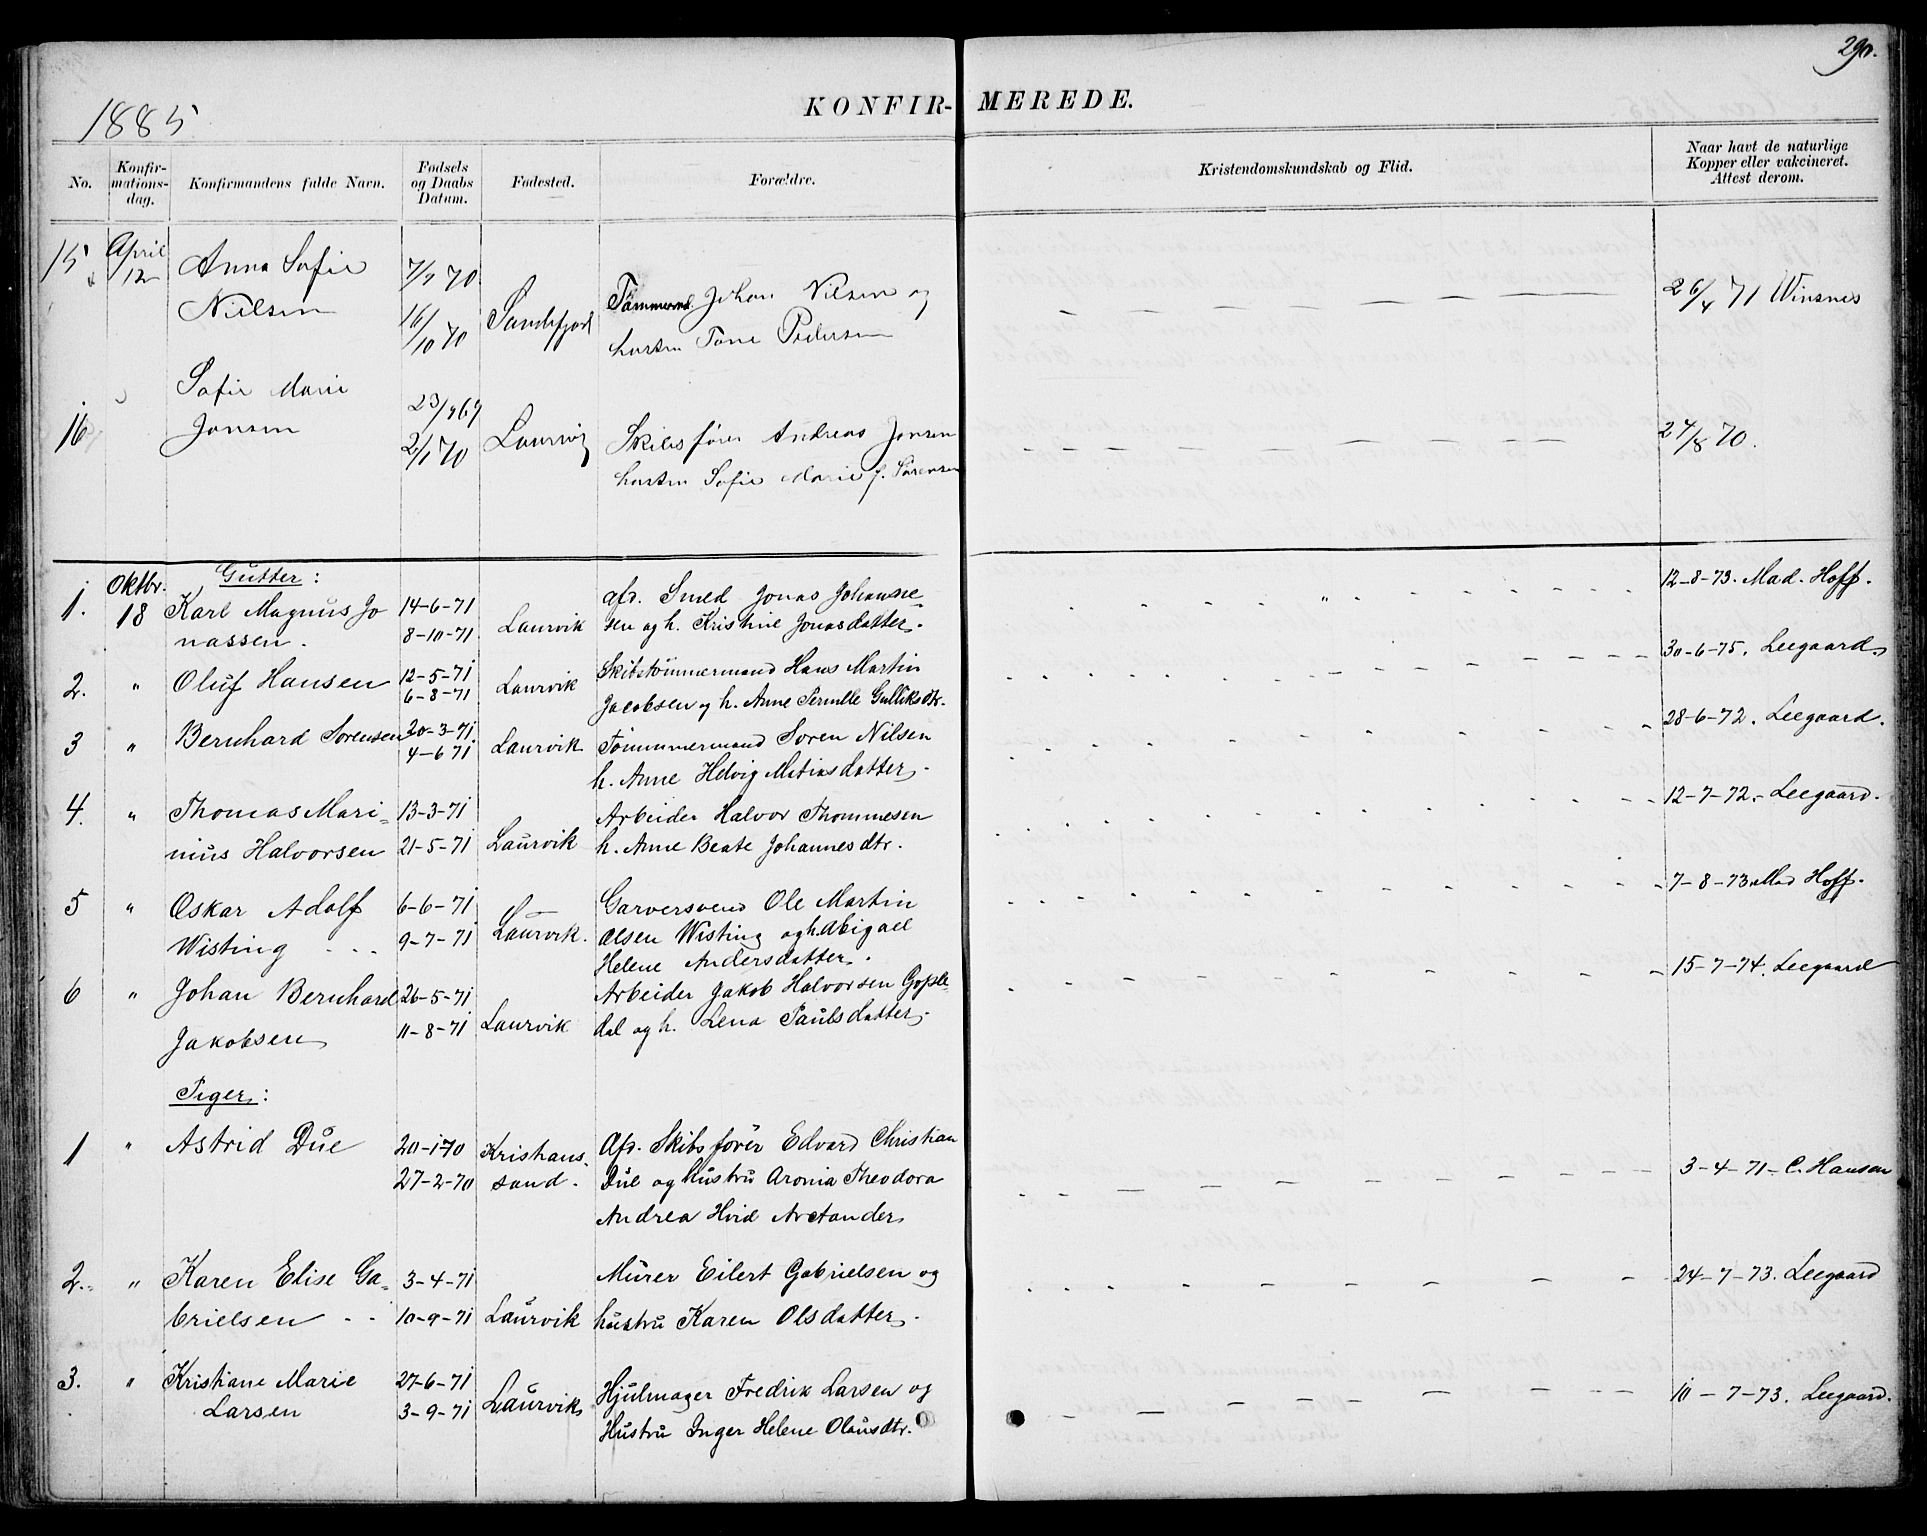 290.
1885
KONFIR- MEREDE.
No.
Konfir-
mations-
dag.
Konfirmandens fulde Navn.
Fødsels
og Daabs
Datum.
Fødested.
Forældre.
Kristendomskundskab og Flid.
Naar havt de naturlige
Kopper eller vakcineret.
Attest derom.
15 April 12 Anna Sofie
Nielsen
7/9 70
16/10 70
Sandefjord
Tømmermd. Johan Nilsen og
hustru Tone Pedersen
26/4 71 Winsnes
16 Sofie Marie
Jensen
2/1 70
Laurvig
Skibsfører Andreas Jensen
hustru Sofie Marie f. Sørensen
24/8 70.
Gutter:
1. Oktbr. 18 Karl Magnus Jo
nassen.
14-6-71
8-10-71.
Laurvik
afd. Smed Jonas Johanne-
sen og h. Kristine Jonasdatter.
12-8-73. Mad. Hoff.
2. " Oluf Hansen
12-5-71
6-8-71
Laurvik
Skibstømmermand Hans Martin
Jacobsen og h. Anne Pernille Gulliksdtr.
30-6-75. Leegaard.
3 " Bernhard Sorensen
20-3-71.
4-6 71
Laurvik
Tømmermand Soren Nilsen
h. Anne Helvig Matiasdatter.
28-6-72. Leegaard.
4. " Thomas Mari-
nius Halvorsen
13-3-71
21-5-71
Laurvik
Arbeider Halvor Thommesen
h. Anne Beate Johannesdtr.
12-7-72.- Leegaard.
5 " Oskar Adolf
Wisting
6-6-71
9-7-71
Laurvik.
Garversvend Ole Martin
Olsen Wisting og h. Abigael
Helene Andersdatter.
7-8-73. Mad Hoff.
6 " Johan Bernhard
Jakobsen
26-5-71
11-8-71
Laurvik
Arbeider Jakob Halvorsen Gople-
dal og h. Lena Paulsdatter.
15-7-74. Leegaard
Piger:
1 " Astrid Due
20-1-70
27-2-70
Kristians-
sand.
Afd. Skibsfører Edvard Christian
Due og Hustru Aronia Theodora
Andrea Hvid Arctander
3-4-71- C. Hansen
2. " Karen Elise Ga-
brielsen
3-4-71
10-9-71
Laurvik
Murer Eilert Gabrielsen og
hustru Karen Olsdatter.
24-7-73. Leegaard
3. " Kristiane Marie
Larsen
27-6-71
3-9-71
Laurvik
Hjulmager Fredrik Larsen og
Hustru Inger Helene Olausdtr.
10-7-73. Leegaard.